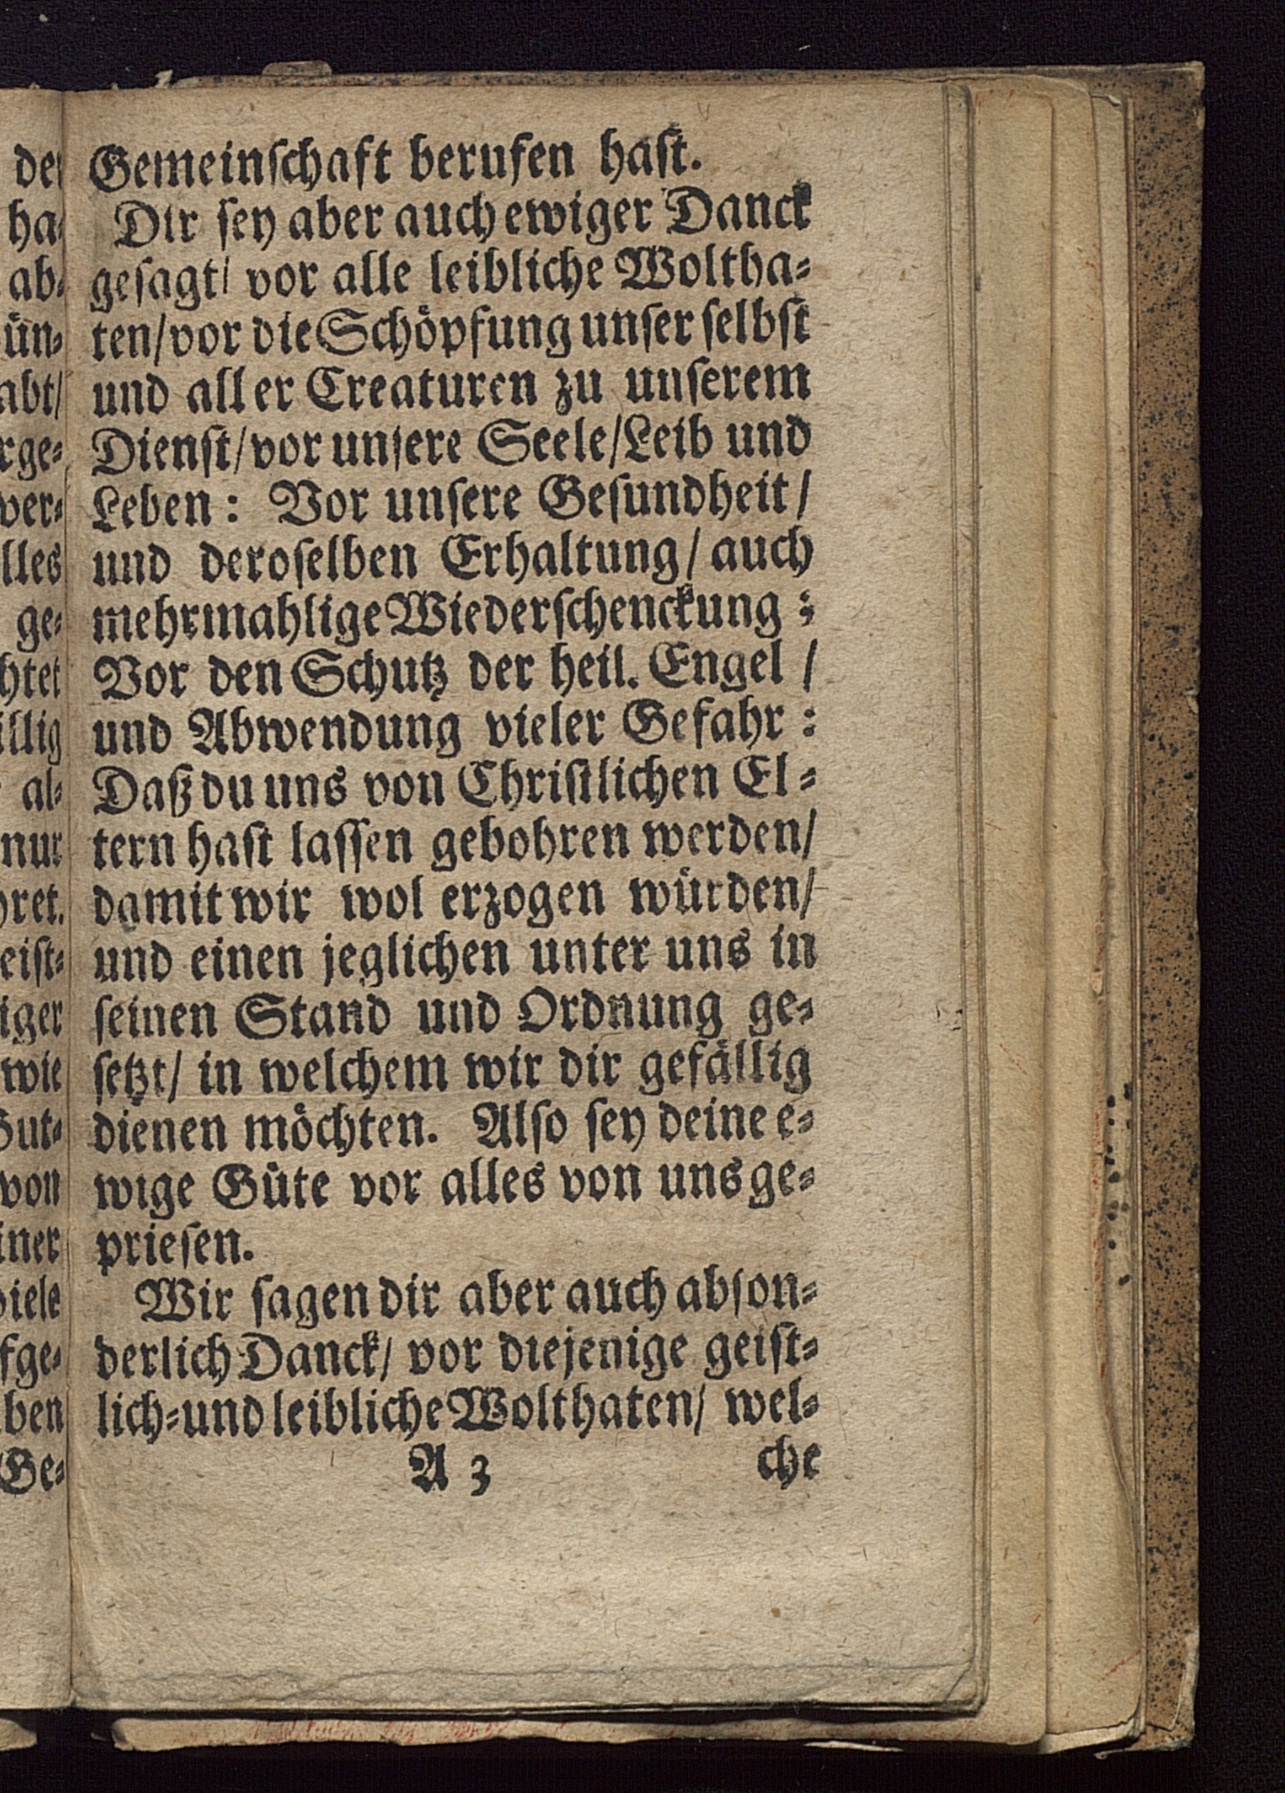 Gemeinſchaft berufen haſt.
Dir ſey aber auch ewiger Danck
geſagt/ vor alle leibliche Woltha⸗
ten/ vor die Schöpfung unſer ſelbſt
und aller Creaturen zu unſerem
Dienſt/ vor unſere Seele/ Leib und
Leben: Vor unſere Geſundheit/
und deroſelben Erhaltung/ auch
mehrmahlige Wiederſchenckung:
Vor den Schutz der heil. Engel/
und Abwendung vieler Gefahr:
Daß du uns von Chriſtlichen El⸗
tern haſt laſſen gebohren werden/
damit wir wol erzogen würden/
und einen jeglichen unter uns in
ſeinen Stand und Ordnung ge⸗
ſetzt/ in welchem wir dir gefällig
dienen möchten. Alſo ſey deine e⸗
wige Güte vor alles von uns ge⸗
prieſen.
Wir ſagen dir aber auch abſon⸗
derlich Danck/ vor diejenige geiſt⸗
lich⸗und leibliche Wolthaten/ wel⸗
A 3 che